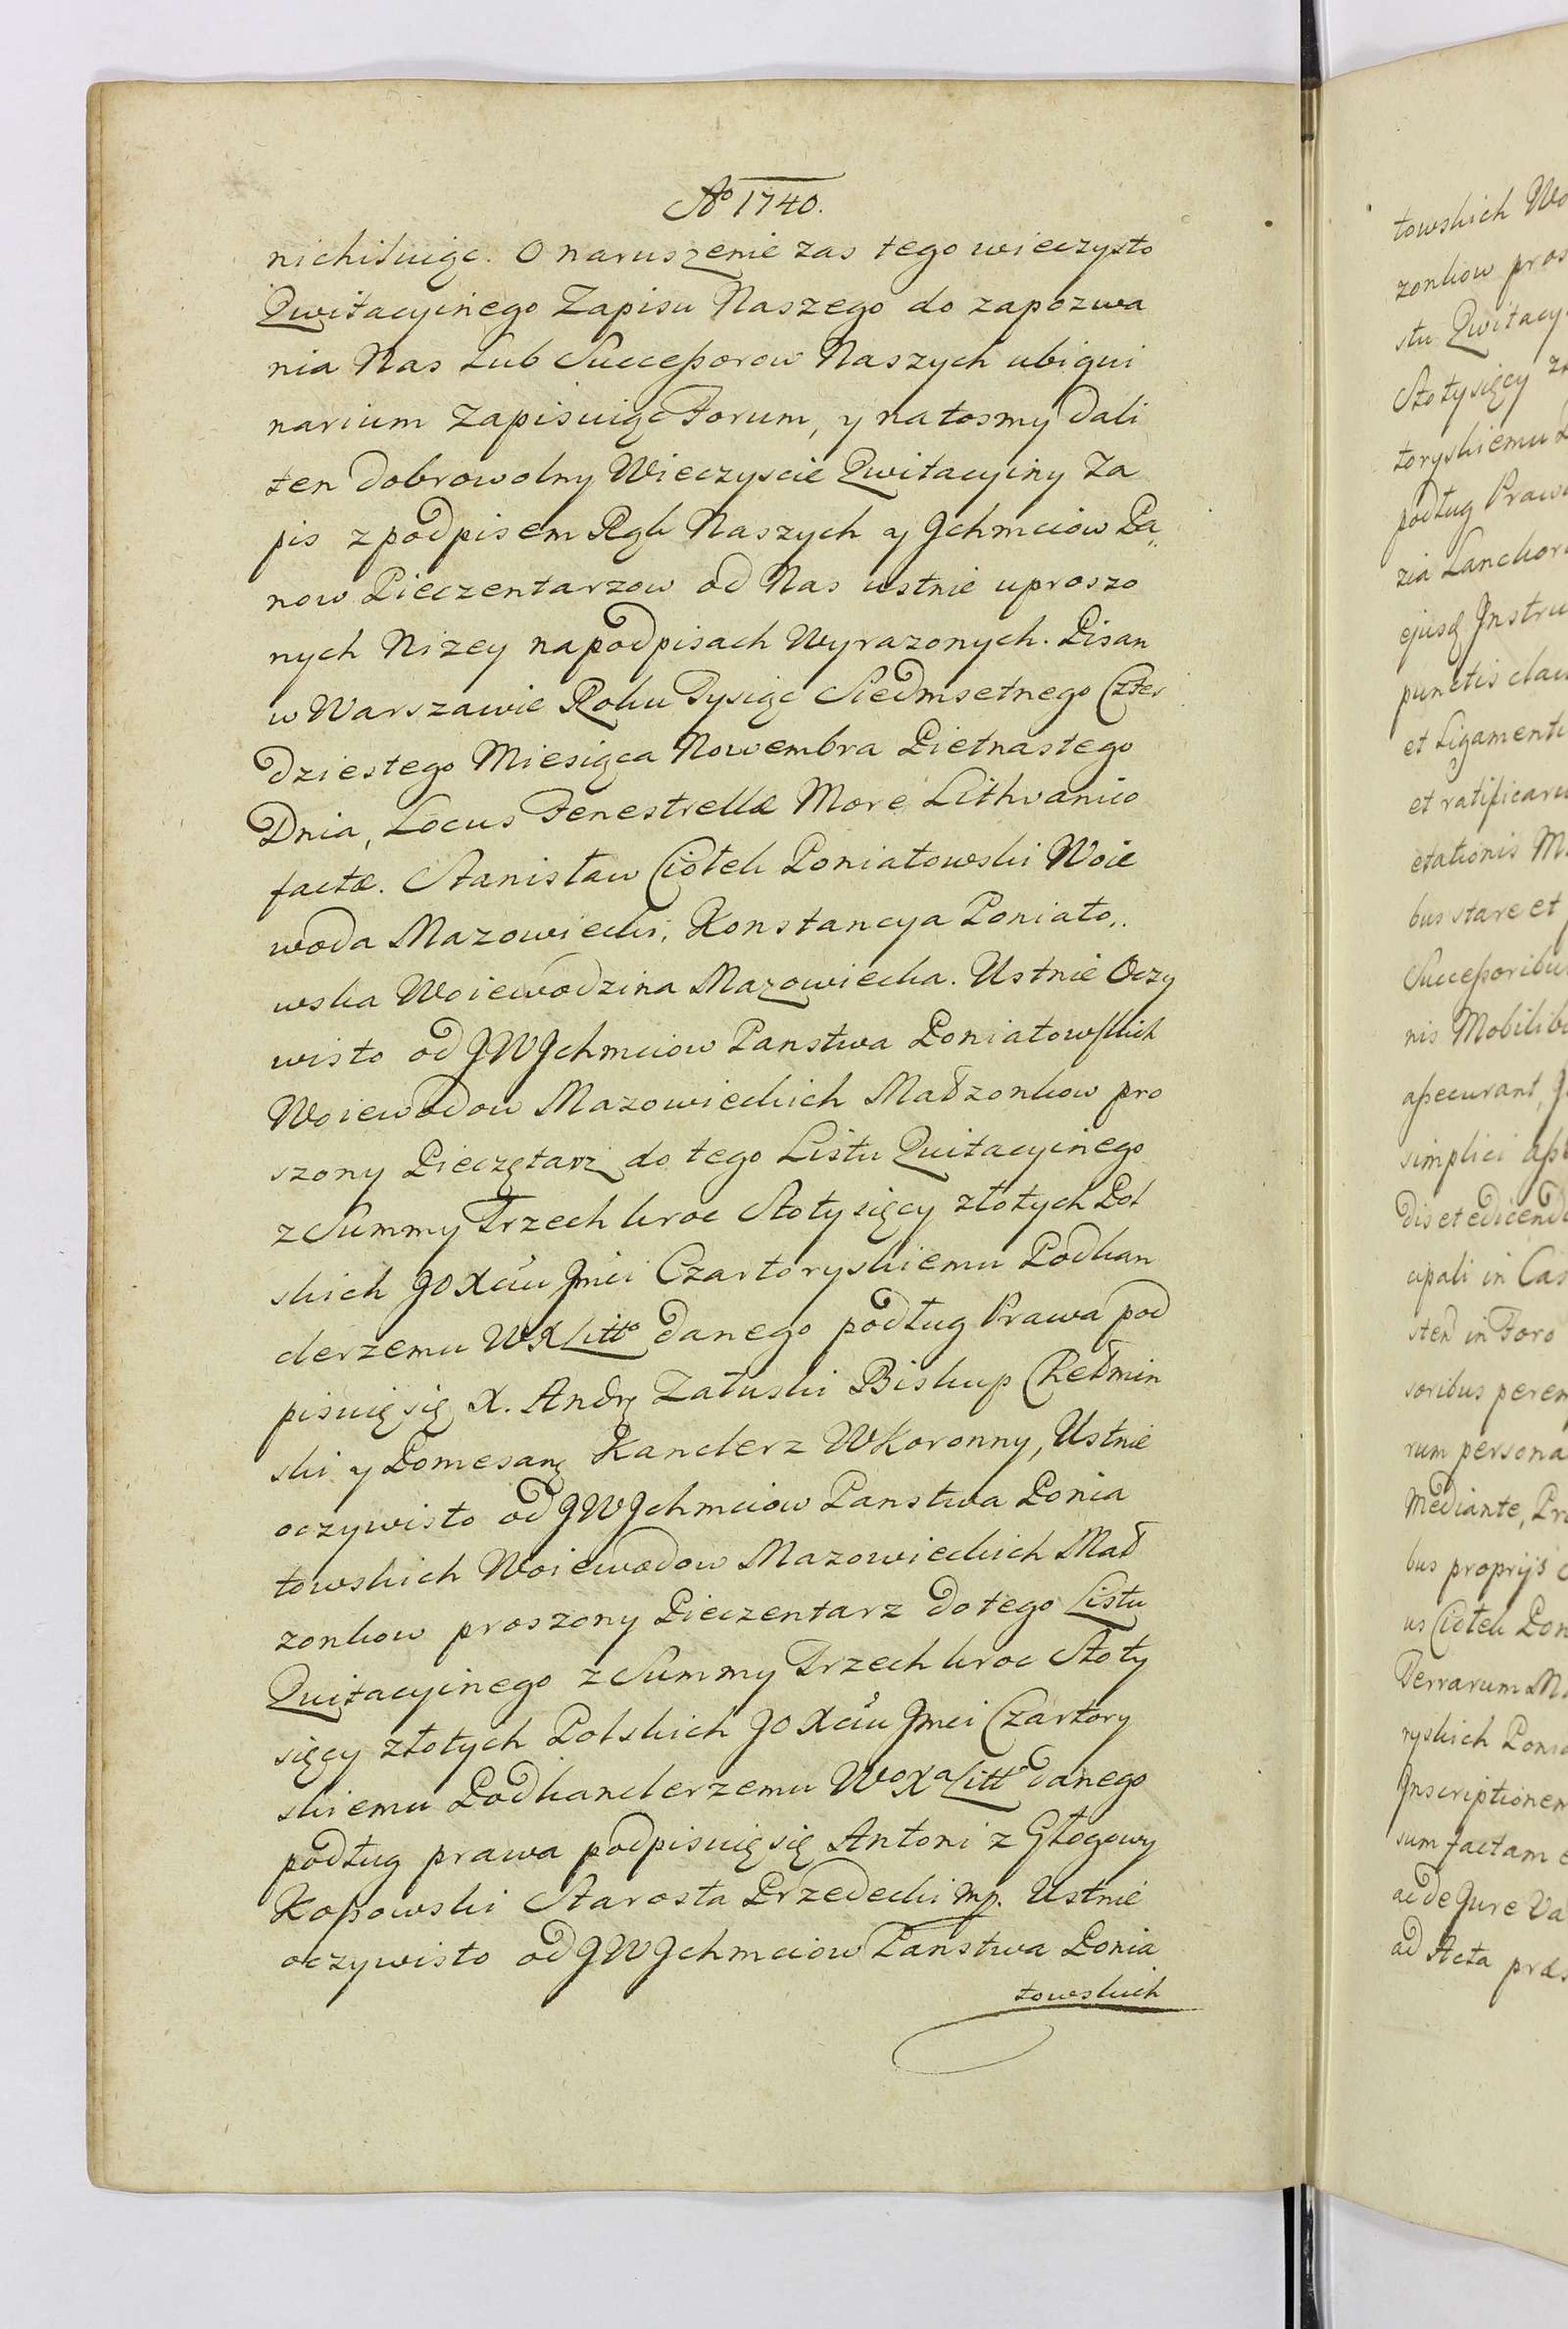 Aº 1740.
nichiluiąc. O naruszenie zas tego wieczysto
Qwitacyinego Zapisu Naszego do zapozwa
nia Nas Lub Successorow Naszych ubiqui
narium Zapisuiąc Forum, y na tosmy dali
ten dobrowolny Wieczyscie Qwitacyiny Za
pis z podpisem Rąk Naszych y Jchmciow Pa„
now Pieczentarzow od Nas ustnie uproszo
nych Nizey na podpisach Wyrazonych. Pisan
w Warszawie Roku Tysiąc Siedmsetnego Czter
dziestego Miesiąca Nowembra Pietnastego
Dnia, Locus Fenestrellæ More Lithvanico
factæ. Stanisław Ciołek Poniatowski Woie
woda Mazowiecki, Konstancya Poniato„
wska Woiewodzina Mazowiecka. Ustnie Oczy
wisto od JWJchmciow Panstwa Poniatowskich
Woiewodow Mazowieckich Małzonkow pro
szony Pieczętarz do tego Listu Quitacyinego
z Summy Trzech kroc Stotysięcy złotych Pol
skich JO Xciu Jmci Czartoryskiemu Podkan
clerzemu WXLitto danego podług Prawa pod
pisuię się X. Andrz Załuski Biskup Chełmin
ski y Pomesanz Kanclerz WKoronny, Ustnie
oczywisto od JWJchmciow Panstwa Ponia
towskich Woiewodow Mazowieckich Mał
zonkow proszony Pieczentarz do tego Listu
Quitacyinego z Summy Trzech kroc Stoty
sięcy złotych Polskich JO Xciu Jmci Czartory
skiemu Podkanclerzemu WoXaLitto danego
podług prawa podpisuię się Antoni z Głogowy
Kossowski Starosta Przedecki mp. Ustnie
oczywisto od JWJchmciow Panstwa Ponia
towskich
towskich Wo
zonkow pros
stu Qwitacy
Stotysięcy
toryskiemu
podług Prawa
zia Lanckor
ejusq Instru
punctis clau
et Ligamenti
et ratificaru
etationis M
bus stare et
Successoribu
nis Mobilibu
assecurant,
simplici
dis et edicend
cipali in Cas
sten in Foro
soribus perem
rum persona
Mediante, Pr
bus proprijs
us Ciołek Pon
Terrarum M
ryskich Ponia
Inscriptionem
sum factam
ac de Jure Va
ad Acta præs